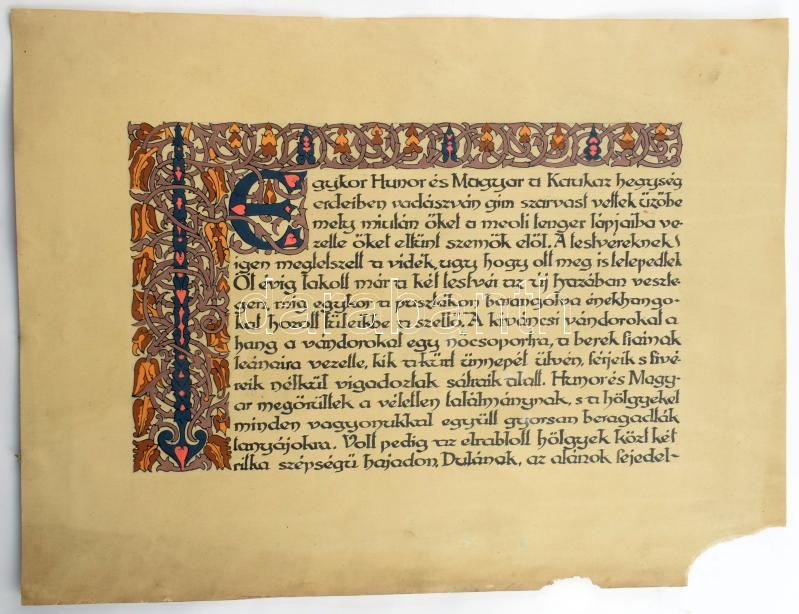 Egykor Hunor és Magyar a Kaukaz hegység
erdeiben vadászván gim szarvast vettek űzőbe
mely miután őket a meoti tenger lápjaiba ve-
zette őket eltünt szemök elöl. A testvéreknek
igen megtetszett a vidék, ugy hogy ott meg is telepedtek
Öt évig lakott már a két testvér az új hazában veszte-
gen, mig egykor a pusztákon barangolva énekhango-
kat hozott füleikbe a szellő. A kiváncsi vándorokat a
hang a vándorokat egy nőcsoportra, a berek fiainak
leánaira vezette, kik a kürt ünnepét ülvén, férjeik s five-
reik nélkül vigadoztak sátraik alatt. Hunor és Magy-
ar megörültek a véletlen találmánynak, s a hölgyeket
minden vagyonukkal együtt gyorsan beragadták
tanyájokra. Volt pedig az elrablott hölgyek közt két
ritka szépségű hajadon, Dulának, az alánok fejedel-
darabanth